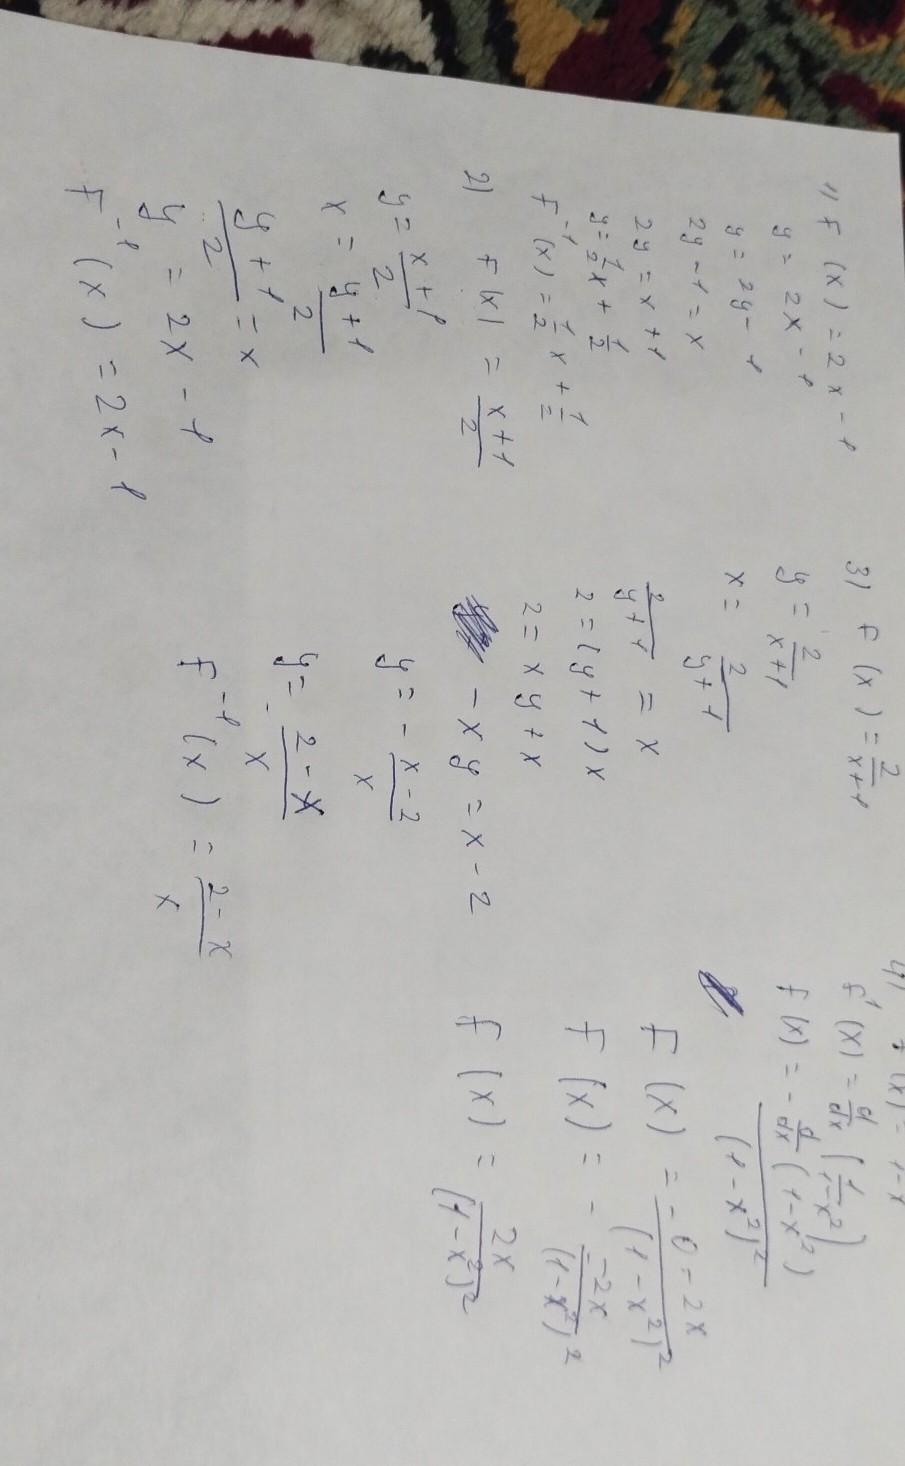 1) F (x) = 2x - 1
y = 2x - 1
y = 2y - 1
2y - 1 = x
2y = x + 1
y = 1/2 x + 1/2
F⁻¹(x) = 1/2 x + 1/2
2) F(x) = (x+1)/2
y = (x+1)/2
x = (y+1)/2
(y+1)/2 = x
y = 2x - 1
F⁻¹(x) = 2x - 1
3) F (x) = 2/(x+1)
y = 2/(x+1)
x = 2/(y+1)
2/(y+1) = x
2 = (y+1)x
2 = xy + x
-xy = x - 2
y = - (x-2)/x
y = (2-x)/x
F⁻¹(x) = (2-x)/x
4) f(x) = 1-x
f'(x) = d/dx (1/(1-x²))
f(x) = - d/dx (1-x²)/(1-x²)²
F(x) = - (0-2x)/(1-x²)²
F(x) = - (-2x)/(1-x²)²
F(x) = 2x/(1-x²)²